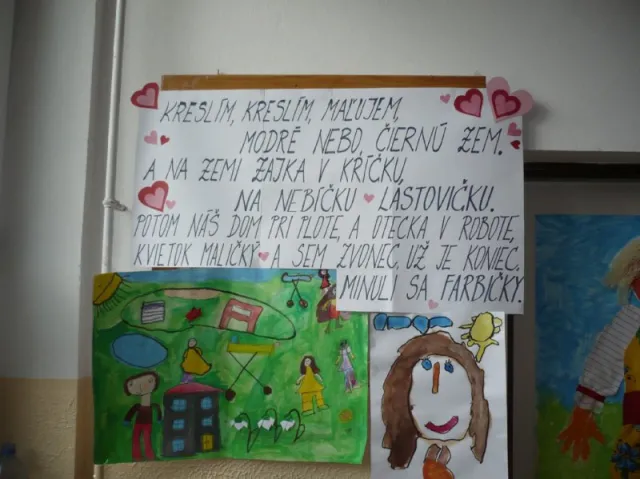 KRESLÍM, KRESLÍM, MAĽUJEM,
MODRÉ NEBO, ČIERNÚ ZEM.
A NA ZEMI ZAJKA V KŔÍČKU,
NA NEBÍČKU LASTOVIČKU.
POTOM NÁŠ DOM PRI PLOTE, A OTECKA V ROBOTE,
KVIETOK MALIČKÝ A SEM ZVONEC, UŽ JE KONIEC.
MINULI SA FARBIČKY.